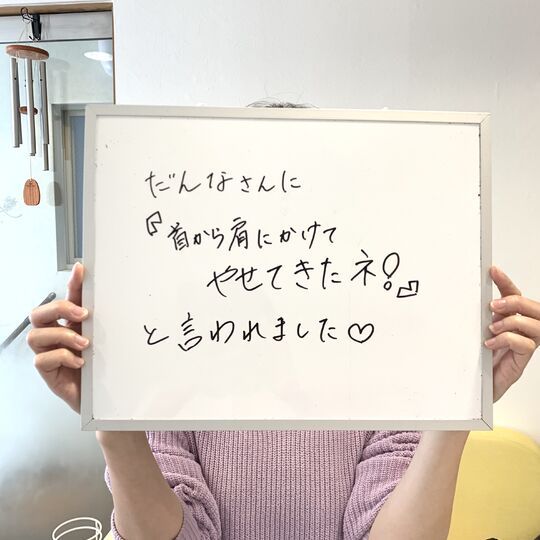 だんなさんに
『首から肩にかけて
やせてきたネ!』
と言われました♡